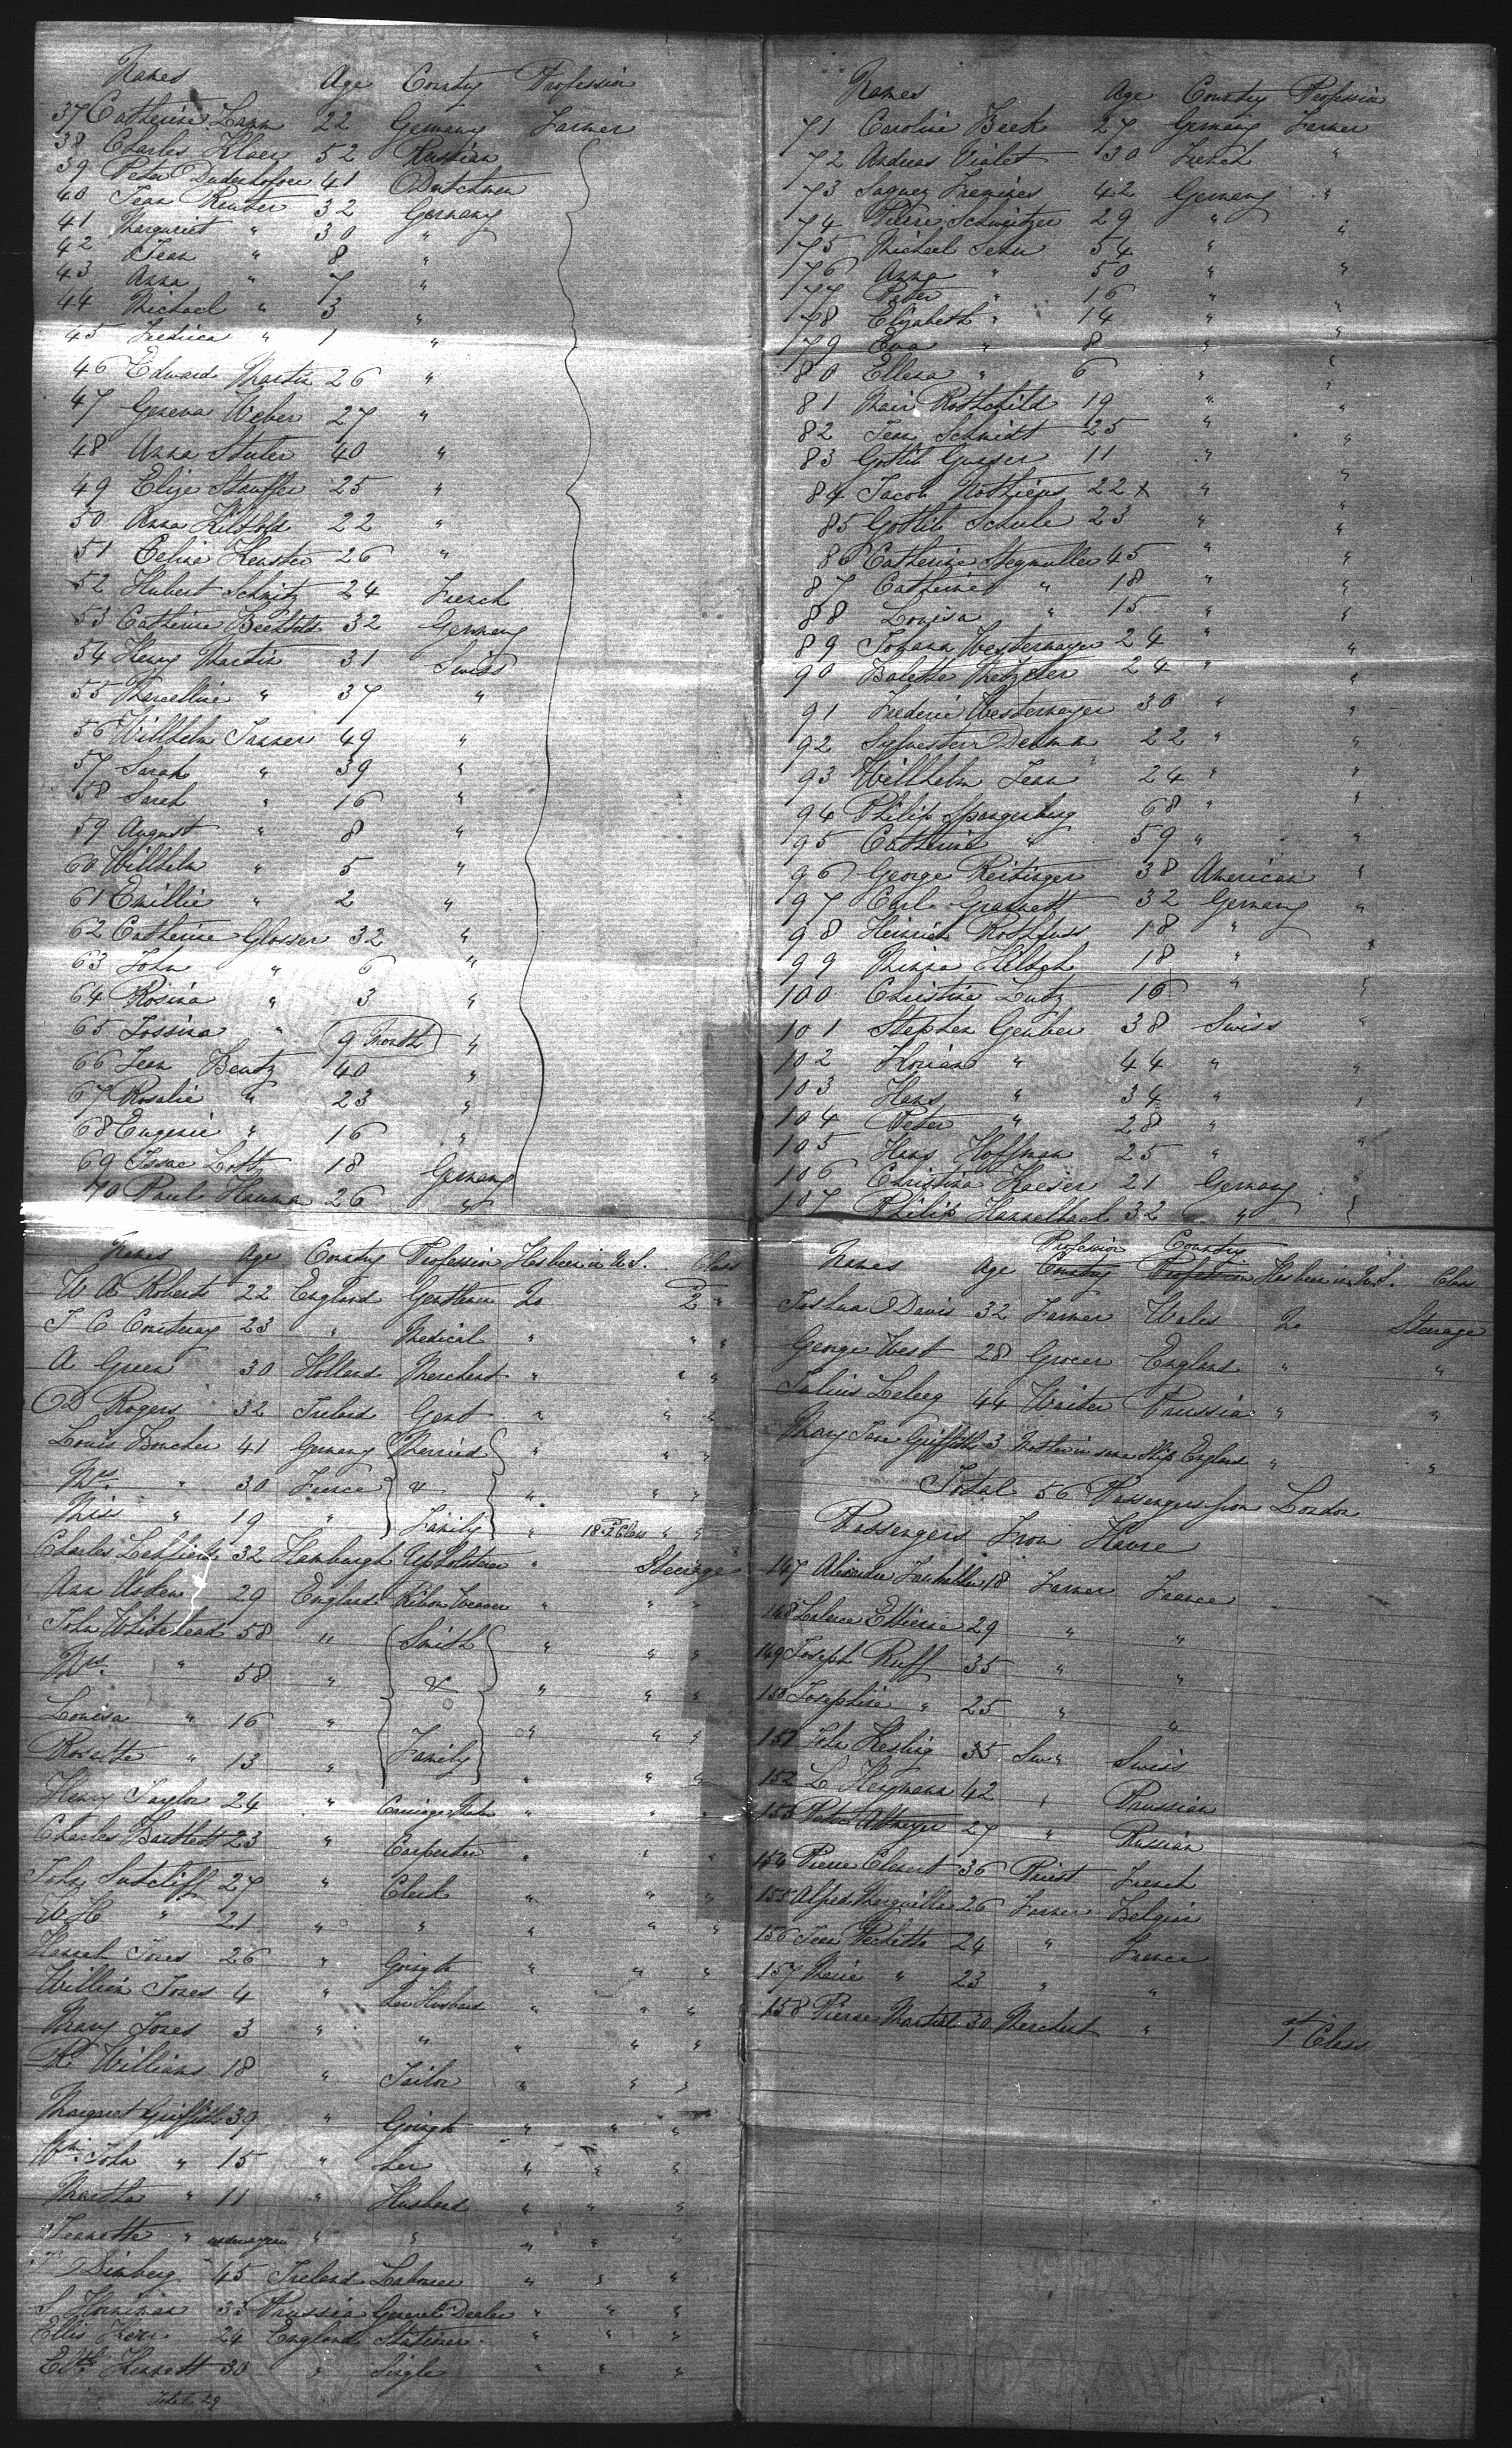 Names Age Country Profession
37 Catherine Lann 22 Germany Farmer
38 Charles Klaey 52 Russian
39 Peter Dudenhofver 41 Dutchmen
40 Jean Reuter 32 Germany
41 Marguriet " 30 "
42 Jean " 8 "
43 Anna " 7 "
44 Michael " 3 "
45 Fredrica " 1 "
46 Edward Martin 26 "
47 Geneva Weber 27 "
48 Anna Stuter 40 "
49 Elize Stauffer 25 "
50 Anna 22 "
51 Celine Kenster 26 "
52 Hubert Schmitz 24 French
53 Catherine Bechtold 32 Germany
54 Henry Martin 31 Swiss
55 Marcelline " 37 "
56 Willhelm Tanner 49 "
57 Sarah " 39 "
58 Sarah " 16 "
59 August " 8 "
60 Willhelm " 5 "
61 Emillie " 2 "
62 Catherine Glosser 32 "
63 John " 6 "
64 Rosina " 3 "
65 Lossina " 9 Month "
66 Jean Bentz 40 "
67 Rosalie " 23 "
68 Eugenie " 16 "
69 Issac Lottz 18 Germany
70 Paul Hauman 26 "
Names Age Country Profession
71 Caroline Beek 27 Germany Farmer
72 Andreas Vialet 30 French "
73 Jaques 42 Germany "
74 Pierre Schweitzer 29 " "
75 Michael Senn 54 "
76 Anna " 50 " "
77 Peter " 16 "
78 Elizabeth " 14 " "
79 Eva " 8 " "
80 Ellena " 6 " "
81 Mair Rothchild 19 " "
82 Jean Schmidt 25 " "
83 Gottlib Gunser 11 " "
84 Jacob 22 x " "
85 Gottlib Schule 23 " "
86 Catherine Stegmuller 45 " "
87 Catherine " 18 " "
88 Louisa " 15 " "
89 Johann Westermayer 24 " "
90 Balette Metzeler 24 " "
91 Frederic Westermeyer 30 " "
92 Sylvester Dehmn 22 " "
93 Willhelm Jean 24 " "
94 Philip Spangenberg 68 " "
95 Catherine " 59 " "
96 George Reitinger 38 American "
97 Carl Grannett 32 Germany "
98 Heinrich Rothfuss 18 "
99 Minna 18 "
100 Christina Lutz 16 "
101 Stephen Genber 38 Swiss "
102 Florian " 44 " "
103 Hans " 34 " "
104 Peter " 28 "
105 Hans Hoffman 25 " "
106 Christina Kaeser 21 Germany "
107 Philip Hasselbach 32 "
Names Age Country Profession Has been in U.S. Class
W A Roberts 22 England Gentleman No 2 "
T C Courtenay 23 " Medical " " "
A Green 30 Holland Merchant " " "
D Rogers 32 Ireland Gent " " "
Louis Boucher 41 Germany Married " " "
Mrs " 30 France & " " "
Miss " 19 " Family " 18 2 Class " "
Charles 32 Hamburgh Upholsterer " Steerage
Ann Asken 29 England Ribon Weaver " " "
John Whitehead 58 " Smith " " "
Mrs " 58 " & " " "
Louisa " 16 " " " "
Rosette " 13 " Family " " "
Henry Taylor 24 " Carriage Maker " " "
Charles Bartlett 23 " Carpenter " " "
John Sutcliff 27 " Clerk " " "
W H " 21 " " " " "
Hannah Jones 26 " Going to " " "
William Jones 4 " her Husband " " "
Mary Jones 3 " " " " "
R Williams 18 " Tailor " " "
Margaret Griffith 39 " Going to " " "
Wm John " 15 " her " " "
Martha " 11 " Husband " " "
Jeanette " under a year " " " " "
T Dimberg 45 Ireland Labourer " " "
S Horniman 33 Prussia General Dealer " " "
Ellis Kerr 24 England Stationer " " "
Elth Hinnett 30 " Single " " "
Total 29
Profession Country
Names Age Country Profession Has been in U.S. Class
Joshua Davis 32 Farmer Wales No Steerage
George West 28 Grocer England " "
Julius Leleeg 44 Waiter Prussia " "
Mary Jane Griffith 3 Mother in same Ship England " "
Total 56 Passengers from London
Passengers From Havre
147 Alexander 18 Farmer France
148 Lalence Ettiene 29 " "
149 Joseph Ruff 35 " "
150 Josephine " 25 " "
151 John Hesling 35 Swiss
152 L Heymann 42 " Prussian
153 Peter Altmeyer 27 " Russian
154 Pierre Clement 36 Priest French
155 Alfred 26 Farmer Belgian
156 Jean Pechette 24 " France
157 Marie " 23 " "
158 Pierre Martial 30 Merchant " 1st Class